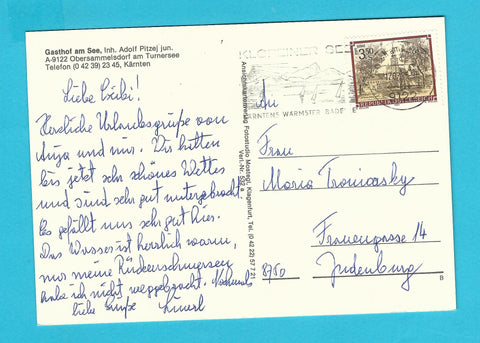 Gasthof am See, Inh. Adolf Pitzej jun.
A-9122 Obersammelsdorf am Turnersee
Telefon (0 42 39) 23 45, Kärnten
Liebe
Herzliche Urlaubsgrüße von
Anja und mir. Wir hatten
bis jetzt sehr schönes Wetter
und sind sehr gut untergebracht.
Es gefällt uns sehr gut hier.
Das Wasser ist herrlich warm,
nur meine Rückenschmerzen
habe ich nicht weggebracht. Nochmals
liebe Grüße
Ansichtskartenverlag Fotostudio Mostegl, Klagenfurt, Tel. (0 42 22) 57 7 21
Verl.-Nr. 592 a
KLOPEINER SEE
KÄRNTENS WÄRMSTER BADE
3.50
REPUBLIK ÖSTERREICH
An
Frau
Maria
Frauengasse 14
8750 Judenburg
B